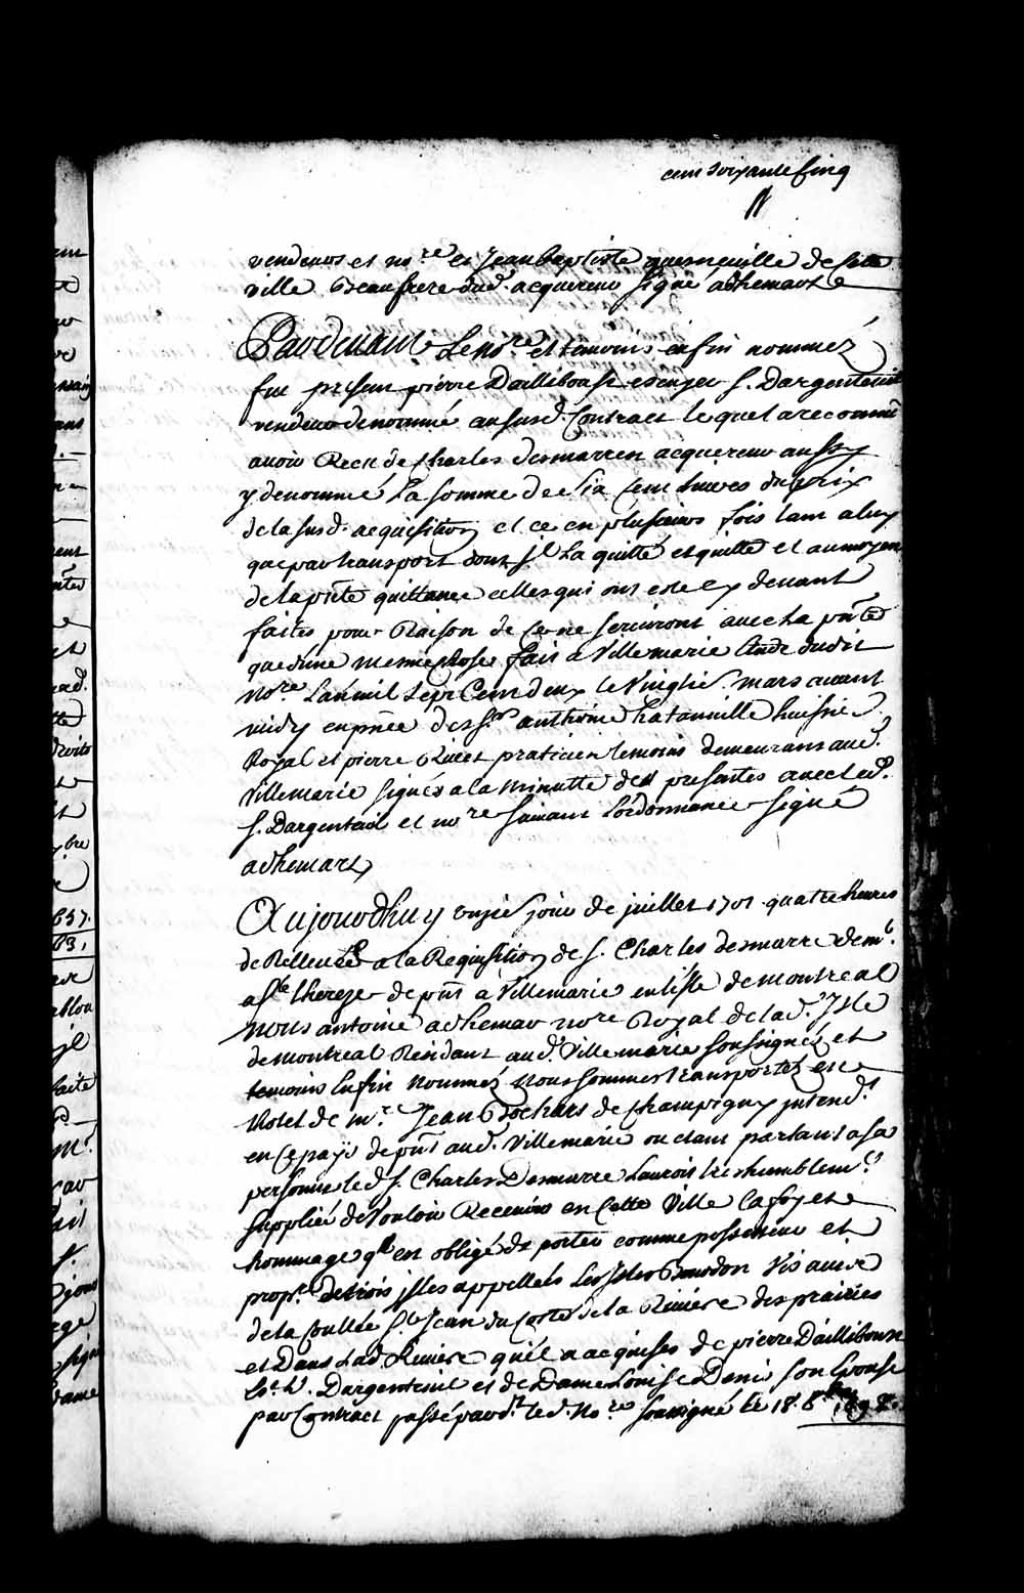 cent soixante cinq
vendeurs et no.re et Jean baptiste quesneuille de cette
ville beaufrere dud. acquereur signé adhemar
Pardeuant Le no.re et temoins enfin nommez
fut present pierre Dailliboust escuyer s. Dargenteuil
vendeur denommé aususd. Contract lequel a reconnu
auoir Receu de charles desmarres acquereur aussy
y denommé La somme de Six Cent Liures du prix
de la susd. acquisition et ce en plusieurs fois tant a luy
que par transport dont il La quitté et quitte et au moyen
de la pnte quittance celles qui ont esté cy deuant
faites pour Raison de ce ne seruiront auec la pnte
que dune mesme chose fait a Villemarie Etude dudit
No.re Lan mil Sept Cent deux le Vingtie. mars auant
midy en pnce des s.rs anthoine hatanuille huissier
Royal et pierre Riuet praticien temoins demeurans aud.
Villemarie signés a la minutte des presentes auec led.
s. Dargenteuil et no.re suiuant Lordonnance signé
adhemar
Aujourdhuy onzie. jour de juillet 1701 quatre heures
de Relleuée a la Requisition de s. Charles desmarre dem.t
a s.te therese de pnt a Villemarie en lisle de montreal
Nous antoine adhemar no.re Royal de lad. Isle
de montreal Residant aud. Villemarie soussigné et
temoins Enfin Nommez Nous sommes transportez en
Lhotel de m.r Jean Bochart de champigny intend.t
en ce pays de pnt aud. Villemarie ou etant parlant a sa
personne led. s. Charles Desmarre Lauroit tres humblem.t
supplié de Vouloir Receuoir en Cette Ville La foy et
hommage q.l est obligé de porter comme possesseur et
prop.re de trois isles appellées Les Isles Bourdon Vis a uis
de la Coullée s.t Jean du Costé de la Riuiere des prairies
et Dans Lad. Riuiere qu'il a acquises de pierre Dailliboust
Es.r s. Dargenteuil et de Dame Louise Denis son Epouse
par Contract passé pard.t led. No.re soussigné Le 18. 8.bre